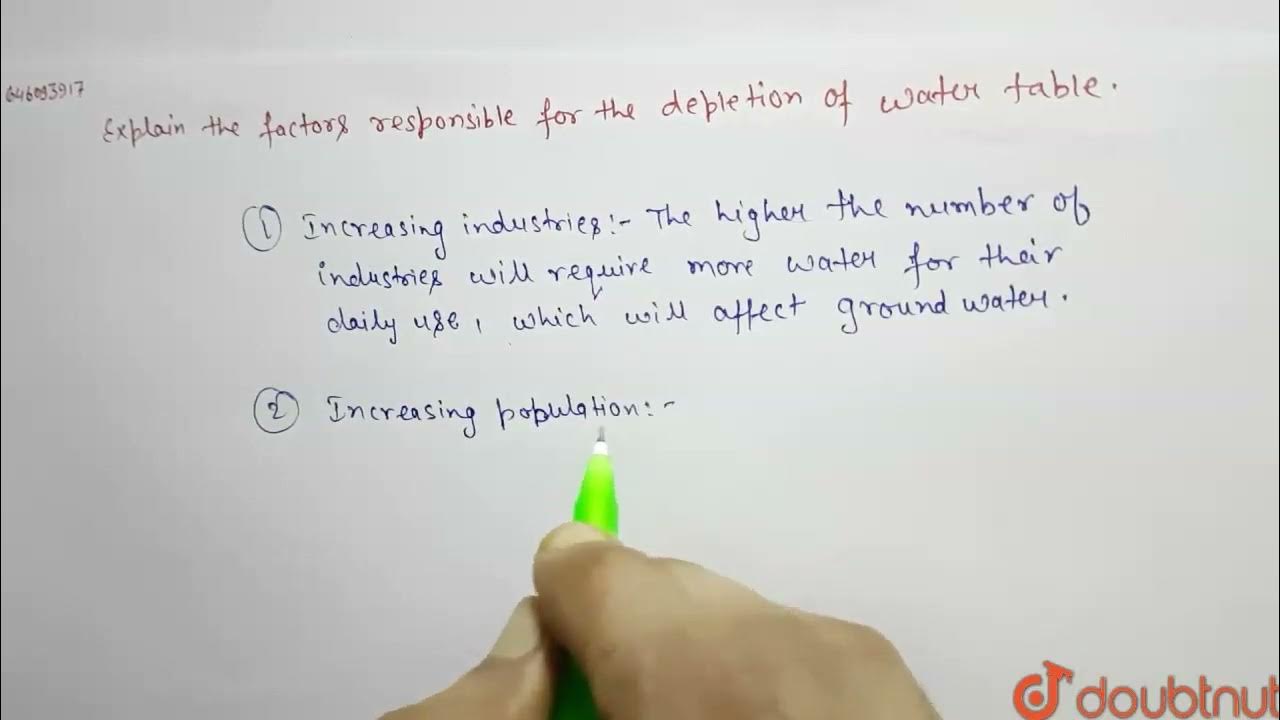 646093917
Explain the factors responsible for the depletion of water table.
① Increasing industries:- The higher the number of
industries will require more water for their
daily use, which will affect ground water.
② Increasing population:-
doubtnut